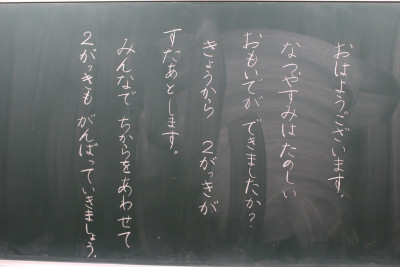 おはようございます。
なつやすみはたのしい
おもいでが できましたか?
きょうから 2がっきが
すたあとします。
みんなで ちからをあわせて
2がっきも がんばっていきましょう。